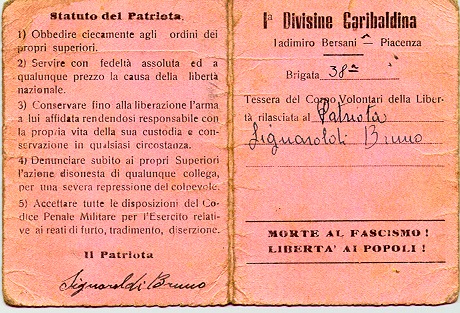 Statuto del Patriota.
1) Obbedire ciecamente agli ordini dei
propri superiori.
2) Servire con fedeltà assoluta ed a
qualunque prezzo la causa della libertà
nazionale.
3) Conservare fino alla liberazione l'arma
a lui affidata rendendosi responsabile con
la propria vita della sua custodia e con-
servazione in qualsiasi circostanza.
4) Denunciare subito ai propri Superiori
l'azione disonesta di qualunque collega,
per una severa repressione del colpevole.
5) Accettare tutte le disposizioni del Co-
dice Penale Militare per l'Esercito relati-
ve ai reati di furto, tradimento, diserzione.
Il Patriota
Signaroldi Bruno
Iª Divisine Garibaldina
Iadimiro Bersani - Piacenza
Brigata 38ª
Tessera del Corpo Volontari della Liber-
tà rilasciata al Patriota
Signaroldi Bruno
MORTE AL FASCISMO !
LIBERTA' AI POPOLI !